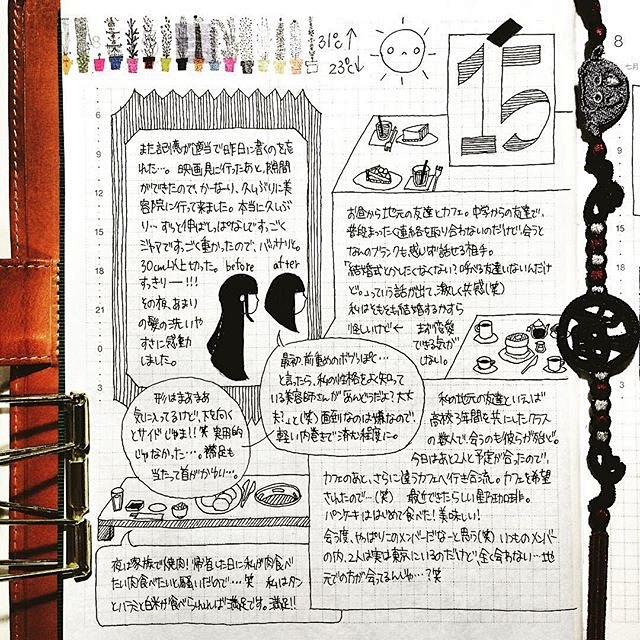 31℃↑
23℃↓
15
8
また記憶が適当で昨日に書くのを忘
れた…。映画見に行ったあと、隙間
ができたので、かーなり、久しぶりに美
容院に行って来ました。本当に久しぶ
り…ずっと伸ばしっぱなしですっごく
すごく重かったので、バッサリと。
30cm以上切った。
すっきりー!!!
その夜、あまり
の髪の洗いや
すさに感動
しました。
before
after
最初、前重めのボブっぽく…
と言ったら、私の性格をよく知って
いる美容師さんが「めんどうだよ?大丈
夫?」と(笑)面倒なのは嫌なので、
軽い内巻きで済む程度に。
形はまあまあ
気に入ってるけど、下を向く
とサイドじゃま!!笑 実用的
じゃなかった…。襟足も
当たって首がかゆい…。
夜は家族で焼肉!帰省した日に私が肉食べ
たい肉食べたいと騒いだので…笑 私はタン
とハラミと白米が食べられれば満足です。満足!!
お昼から地元の友達とカフェ。中学からの友達で、
普段まったく連絡を取り合わないのだけど、会うと
なんのブランクも感じず話せる相手。
「結婚式とかしたくなくない?呼べる友達いないんだけ
ど。」っていう話が出て、激しく共感(笑)
私はそもそも結婚するかすら
怪しいけど←
まず恋愛
できる気が
しない。
私の地元の友達といえば
高校3年間を共にしたクラス
の数人で、会うのも彼らが殆ど。
今日はあと2人と予定が合ったので、
カフェのあと、さらに違うカフェへ行き合流。カフェを希望
されたので…(笑) 最近できたらしい星乃珈琲。
パンケーキははじめて食べた!美味しい!
今度、やっぱりこのメンバーだなーと思う(笑) いつものメンバー
の内、2人は実は東京にいるのだけど、全く会わない…地
元での方が会ってるんじゃ…?笑
8
七月